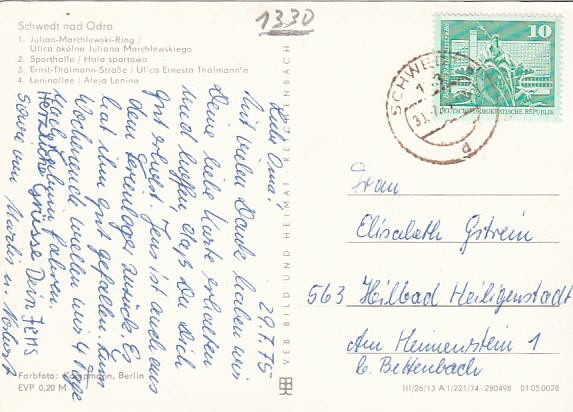 1330
Schwedt nad Odrą
1. Julian-Marchlewski-Ring /
Ulica okólna Juliana Marchlewskiego
2. Sporthalle / Hala sportowa
3. Ernst-Thälmann-Straße / Ulica Ernesta Thälmann'a
4. Leninallee / Aleja Lenina
29.7.75
Liebe Oma!
Mit vielen Dank haben wir
Deine liebe Karte erhalten
und hoffen, daß Du Dich
gut erholst. Jens ist auch aus
dem Ferienlager zurück. Es
hat ihm gut gefallen. Zum
Wochenende wollen wir 4 Tage
nach fahren.
Herzliche Grüsse Dein Jens
sowie von Martin u.
Farbfoto: Kampmann, Berlin
EVP 0,20 M
VEB BILD UND HEIMAT · REICHENBACH
SCHWED
10
DEUTSCHE DEMOKRATISCHE REPUBLIK
Frau
Elisabeth Gstrein
563 Heilbad Heiligenstadt
Am Hennenstein 1
b. Bettenbach
III/26/13 A 1/221/74 - 280498 01 05 0028